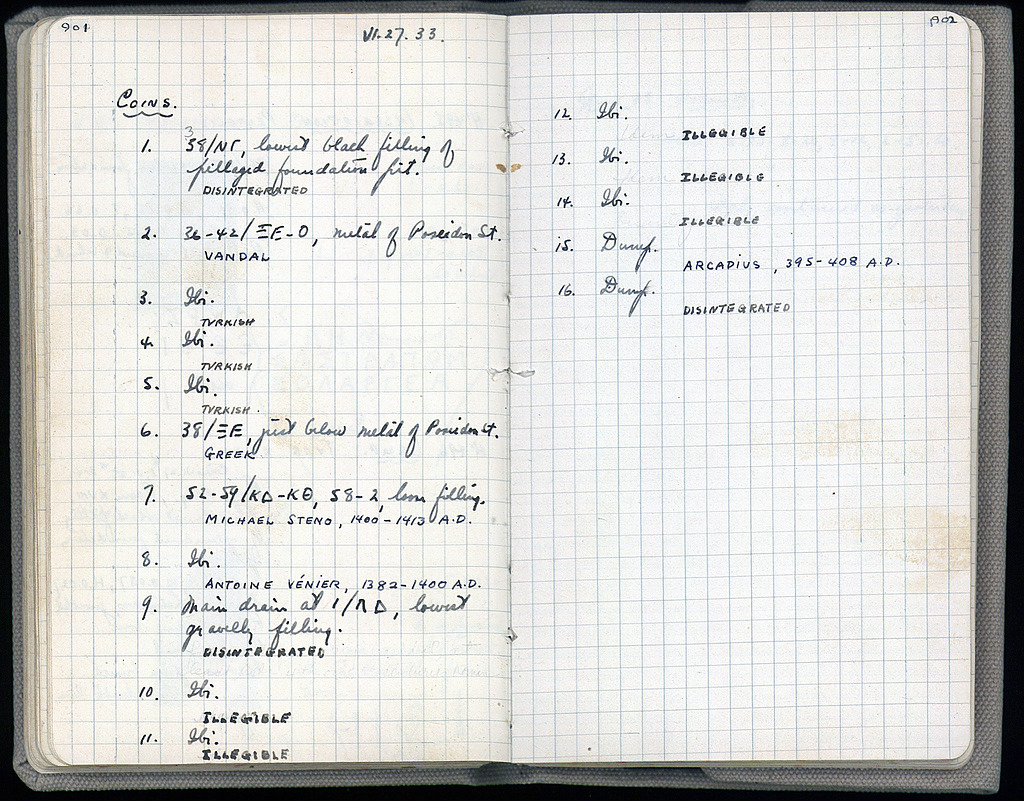 901
VI.27.33.
COINS.
1. 38/ΝΓ, lowest black filling of
3
pillaged foundation pit.
DISINTEGRATED
2. 36-42/ΞΕ-Ο, metal of Poseidon St.
VANDAL
3. Ibi.
TVRKISH
4. Ibi.
TVRKISH
5. Ibi.
TVRKISH.
6. 38/ΞΕ, just below metal of Poseidon St.
GREEK
7. 52-59/ΚΔ-ΚΘ, 58-2, loose filling.
MICHAEL STENO, 1400-1413 A.D.
8. Ibi.
ANTOINE VÉNIER, 1382-1400 A.D.
9. Main drain at 1/ΠΔ, lowest
gravelly filling.
DISINTEGRATED
10. Ibi.
ILLEGIBLE
11. Ibi.
ILLEGIBLE
902
12. Ibi.
ILLEGIBLE
13. Ibi.
ILLEGIBLE
14. Ibi.
ILLEGIBLE
15. Dump.
ARCADIUS, 395-408 A.D.
16. Dump.
DISINTEGRATED